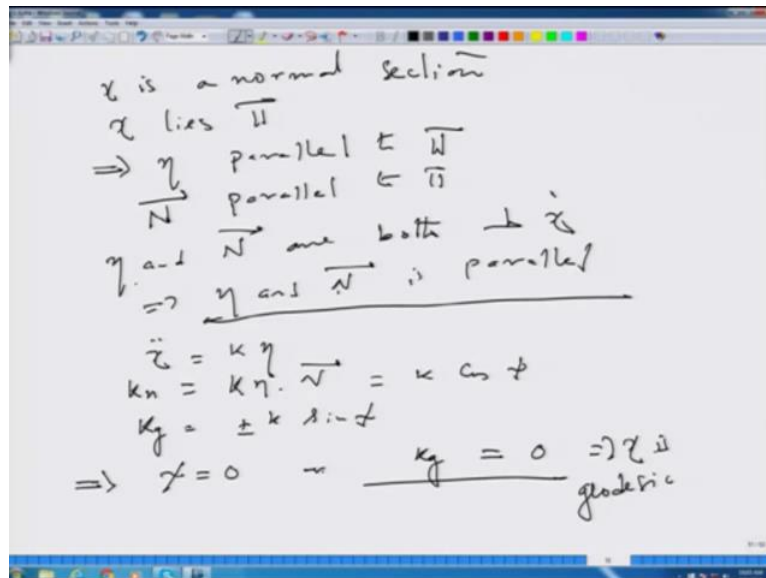 γ is a normal section
γ lies Π
⇒ η parallel to Π
N⃗ parallel to Π
η and N⃗ are both ⊥ γ̇
⇒ η and N⃗ is parallel
γ̈ = κ η
κn = κ η · N⃗ = κ cos ψ
κg = ± κ sin ψ
⇒ ψ = 0 κg = 0 ⇒ γ is
geodesic